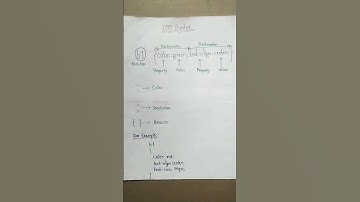 CSS Syntax
Declaration Declaration
h1 { color: green; text-align: center; }
Selector
Property Value Property Value
: → Colon
; → Semicolon
{ } → Braces
For Example:
h1
{
color: red;
text-align: center;
font-size: 30px;
}